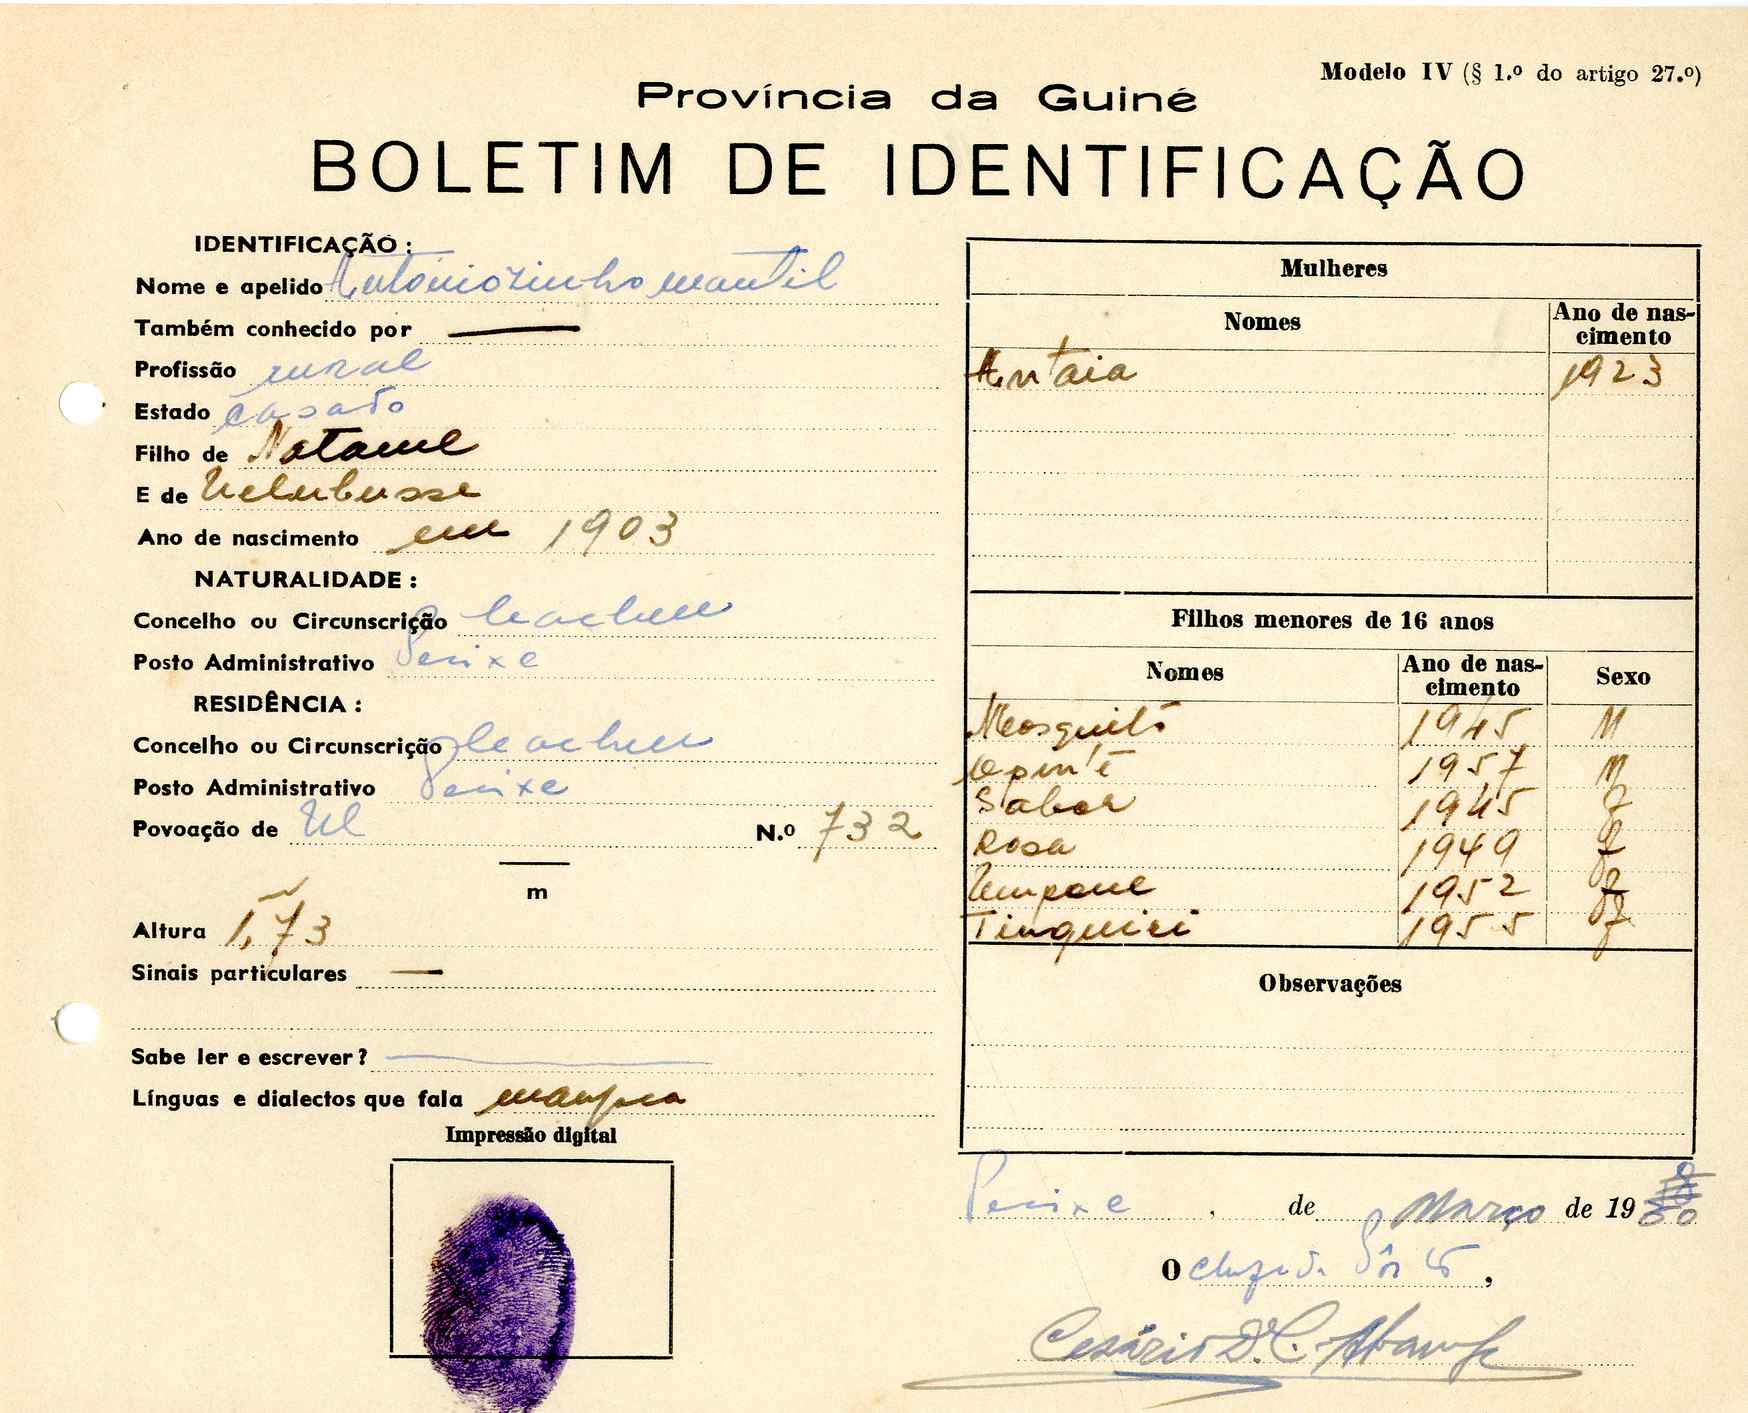 Modelo IV (§ 1.º do artigo 27.º)
Província da Guiné
BOLETIM DE IDENTIFICAÇÃO
IDENTIFICAÇÃO :
Nome e apelido Antóniozinho mantil
Também conhecido por —
Profissão rural
Estado casado
Filho de Natame
E de
Ano de nascimento em 1903
NATURALIDADE :
Concelho ou Circunscrição Cacheu
Posto Administrativo Pecixe
RESIDÊNCIA :
Concelho ou Circunscrição Cacheu
Posto Administrativo Pecixe
Povoação de N.º 732
m
Altura 1,73
Sinais particulares —
Sabe ler e escrever? —
Línguas e dialectos que fala
Impressão digital
Mulheres
Nomes Ano de nas-cimento
Antaia 1923
Filhos menores de 16 anos
Nomes Ano de nas-cimento Sexo
Mosquito 1945 M
1957 M
Sabor 1945 F
Rosa 1949 F
1952 F
Tinquiri 1955 F
Observações
Pecixe, de Março de 19
O chefe do Pôsto,
Cesário D. C.